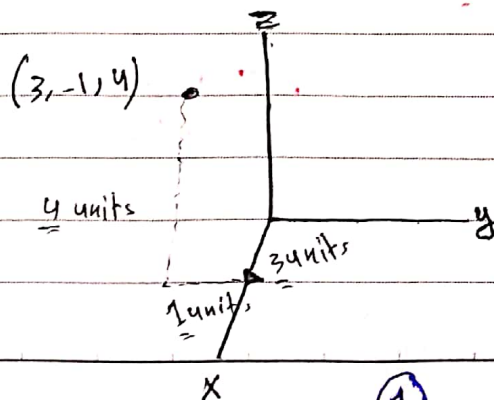 z
(3,-1,4)
4 units
y
3 units
1 units
x
1